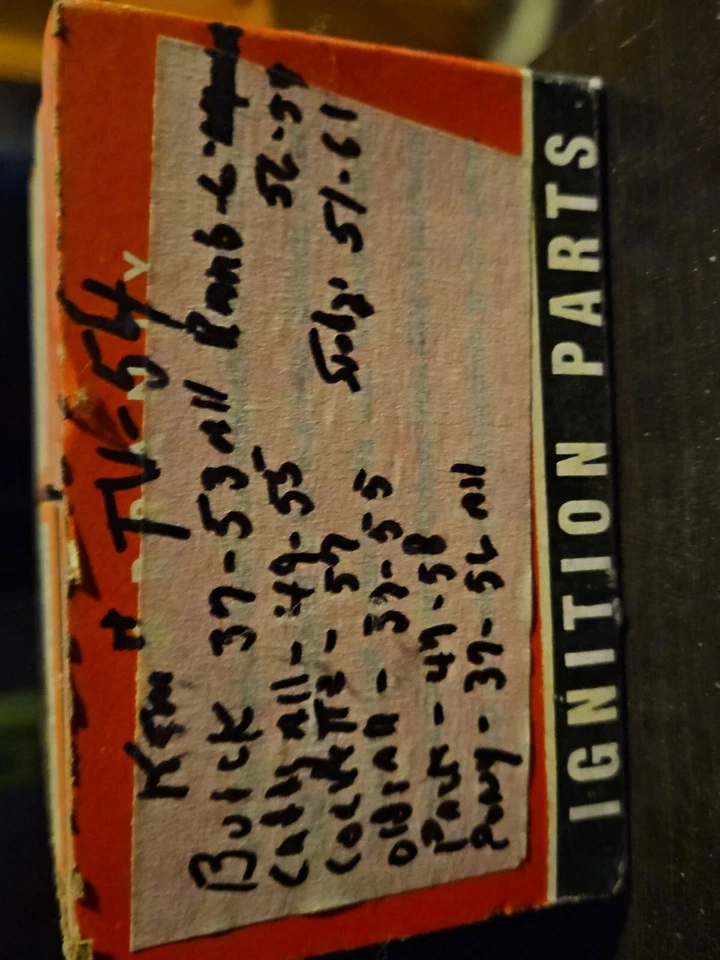 Kem # TV-54
Buick 37-53 All Ramb-6-
56-59
Caddy All - 49-55
Corvette - 57 Stude 51-61
Olds All - 37-55
Pack - 49-58
Pony - 37-56 All
IGNITION PARTS